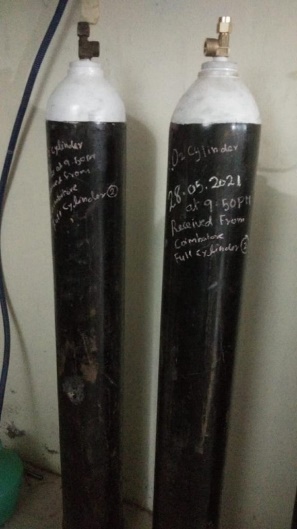 Cylinder
at 9.50PM
From
Full Cylinder ②
O2 Cylinder
28.05.2021
at 9.50PM
Received From
Coimbatore
Full Cylinder ②